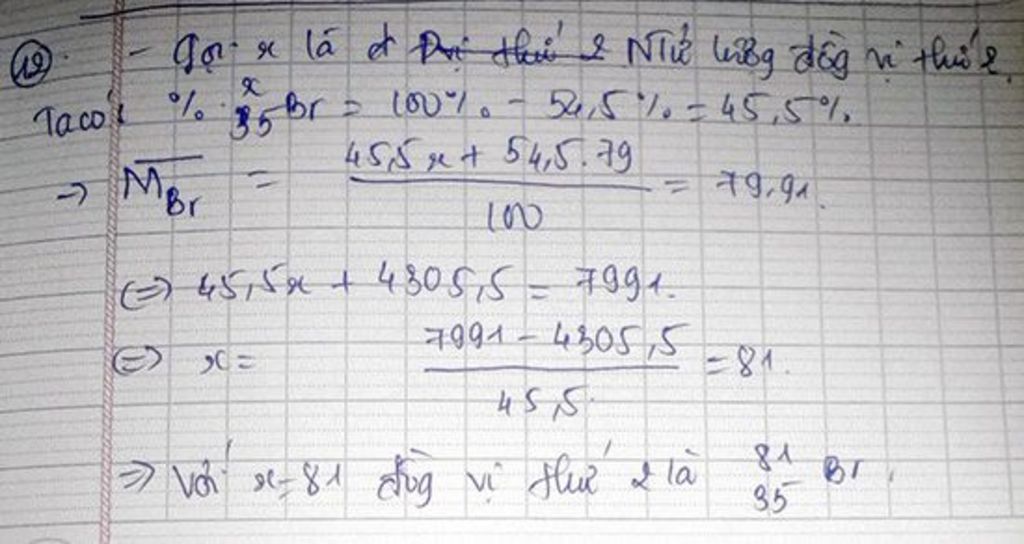 (12). - Gọi x là đ Đvị thứ 2 NTử lượg đồg vị thứ 2.
Ta có: % x 35 Br = 100% - 54,5% = 45,5%.
→ M̅Br = (45,5x + 54,5.79) / 100 = 79,91.
(=) 45,5x + 4305,5 = 7991.
(=) x = (7991 - 4305,5) / 45,5 = 81.
=> Với x = 81 đồg vị thứ 2 là 81 35 Br.